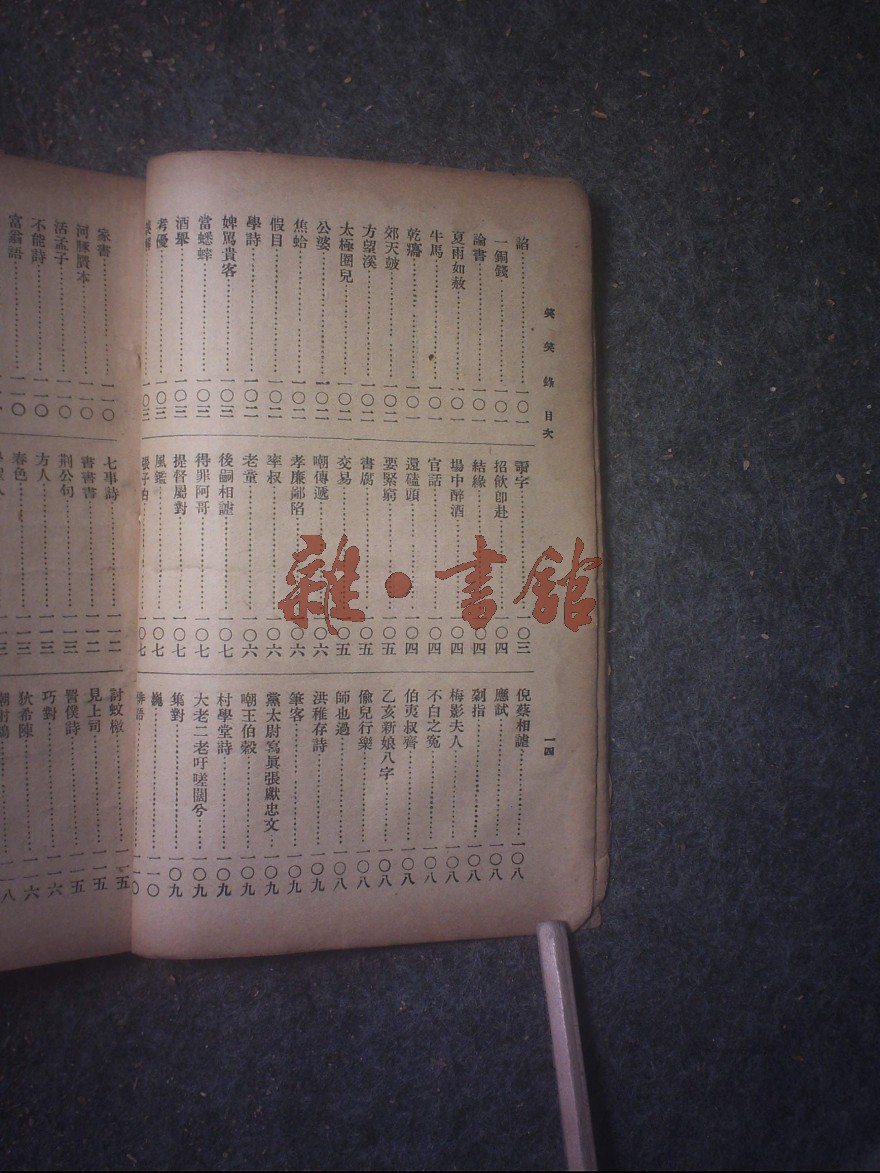 笑笑錄目次
一四
諂……一〇一
一銅錢……一〇一
論書……一〇一
夏雨如赦……一〇一
牛馬……一〇一
乾鼈……一〇一
郊天皷……一〇二
方望溪……一〇二
太極圈兒……一〇二
公婆……一〇二
焦蛤……一〇二
假目……一〇二
學詩……一〇二
婢罵貴客……一〇三
當蟋蟀……一〇三
酒舉……一〇三
考優……一〇三
一〇三
字……一〇三
招飲卽赴……一〇四
結緣……一〇四
場中醉酒……一〇四
官話……一〇四
還磕頭……一〇四
要緊窮……一〇五
書腐……一〇五
交易……一〇五
嘲傳遞……一〇六
孝廉鄙陷……一〇六
率叔……一〇六
老童……一〇六
後嗣相謔……一〇七
得罪阿哥……一〇七
提督屬對……一〇七
風鑑……一〇七
張子白……一〇七
倪蔡相謔……一〇八
應試……一〇八
剁指……一〇八
梅影夫人……一〇八
不白之冤……一〇八
伯夷叔齊……一〇八
乙亥新娘八字……一〇八
偷兒行樂……一〇八
師也過……一〇八
洪稚存詩……一〇九
筆客……一〇九
黨太尉寫眞張獻忠文……一〇九
嘲王伯穀……一〇九
村學堂詩……一〇九
大老二老吁嗟闊兮……一〇九
集對……一〇九
巍……一一〇
語……一一〇
家書……一一〇
河豚贋本……一一〇
活孟子……一一〇
不能詩……一一〇
富翁語
七事詩……一一二
書書書……一一二
荆公句……一一三
方人……一一三
春色……一一三
討蚊檄……一一五
見上司……一一五
晉僕詩……一一五
巧對……一一六
狄希陳……一一六
雜•書館